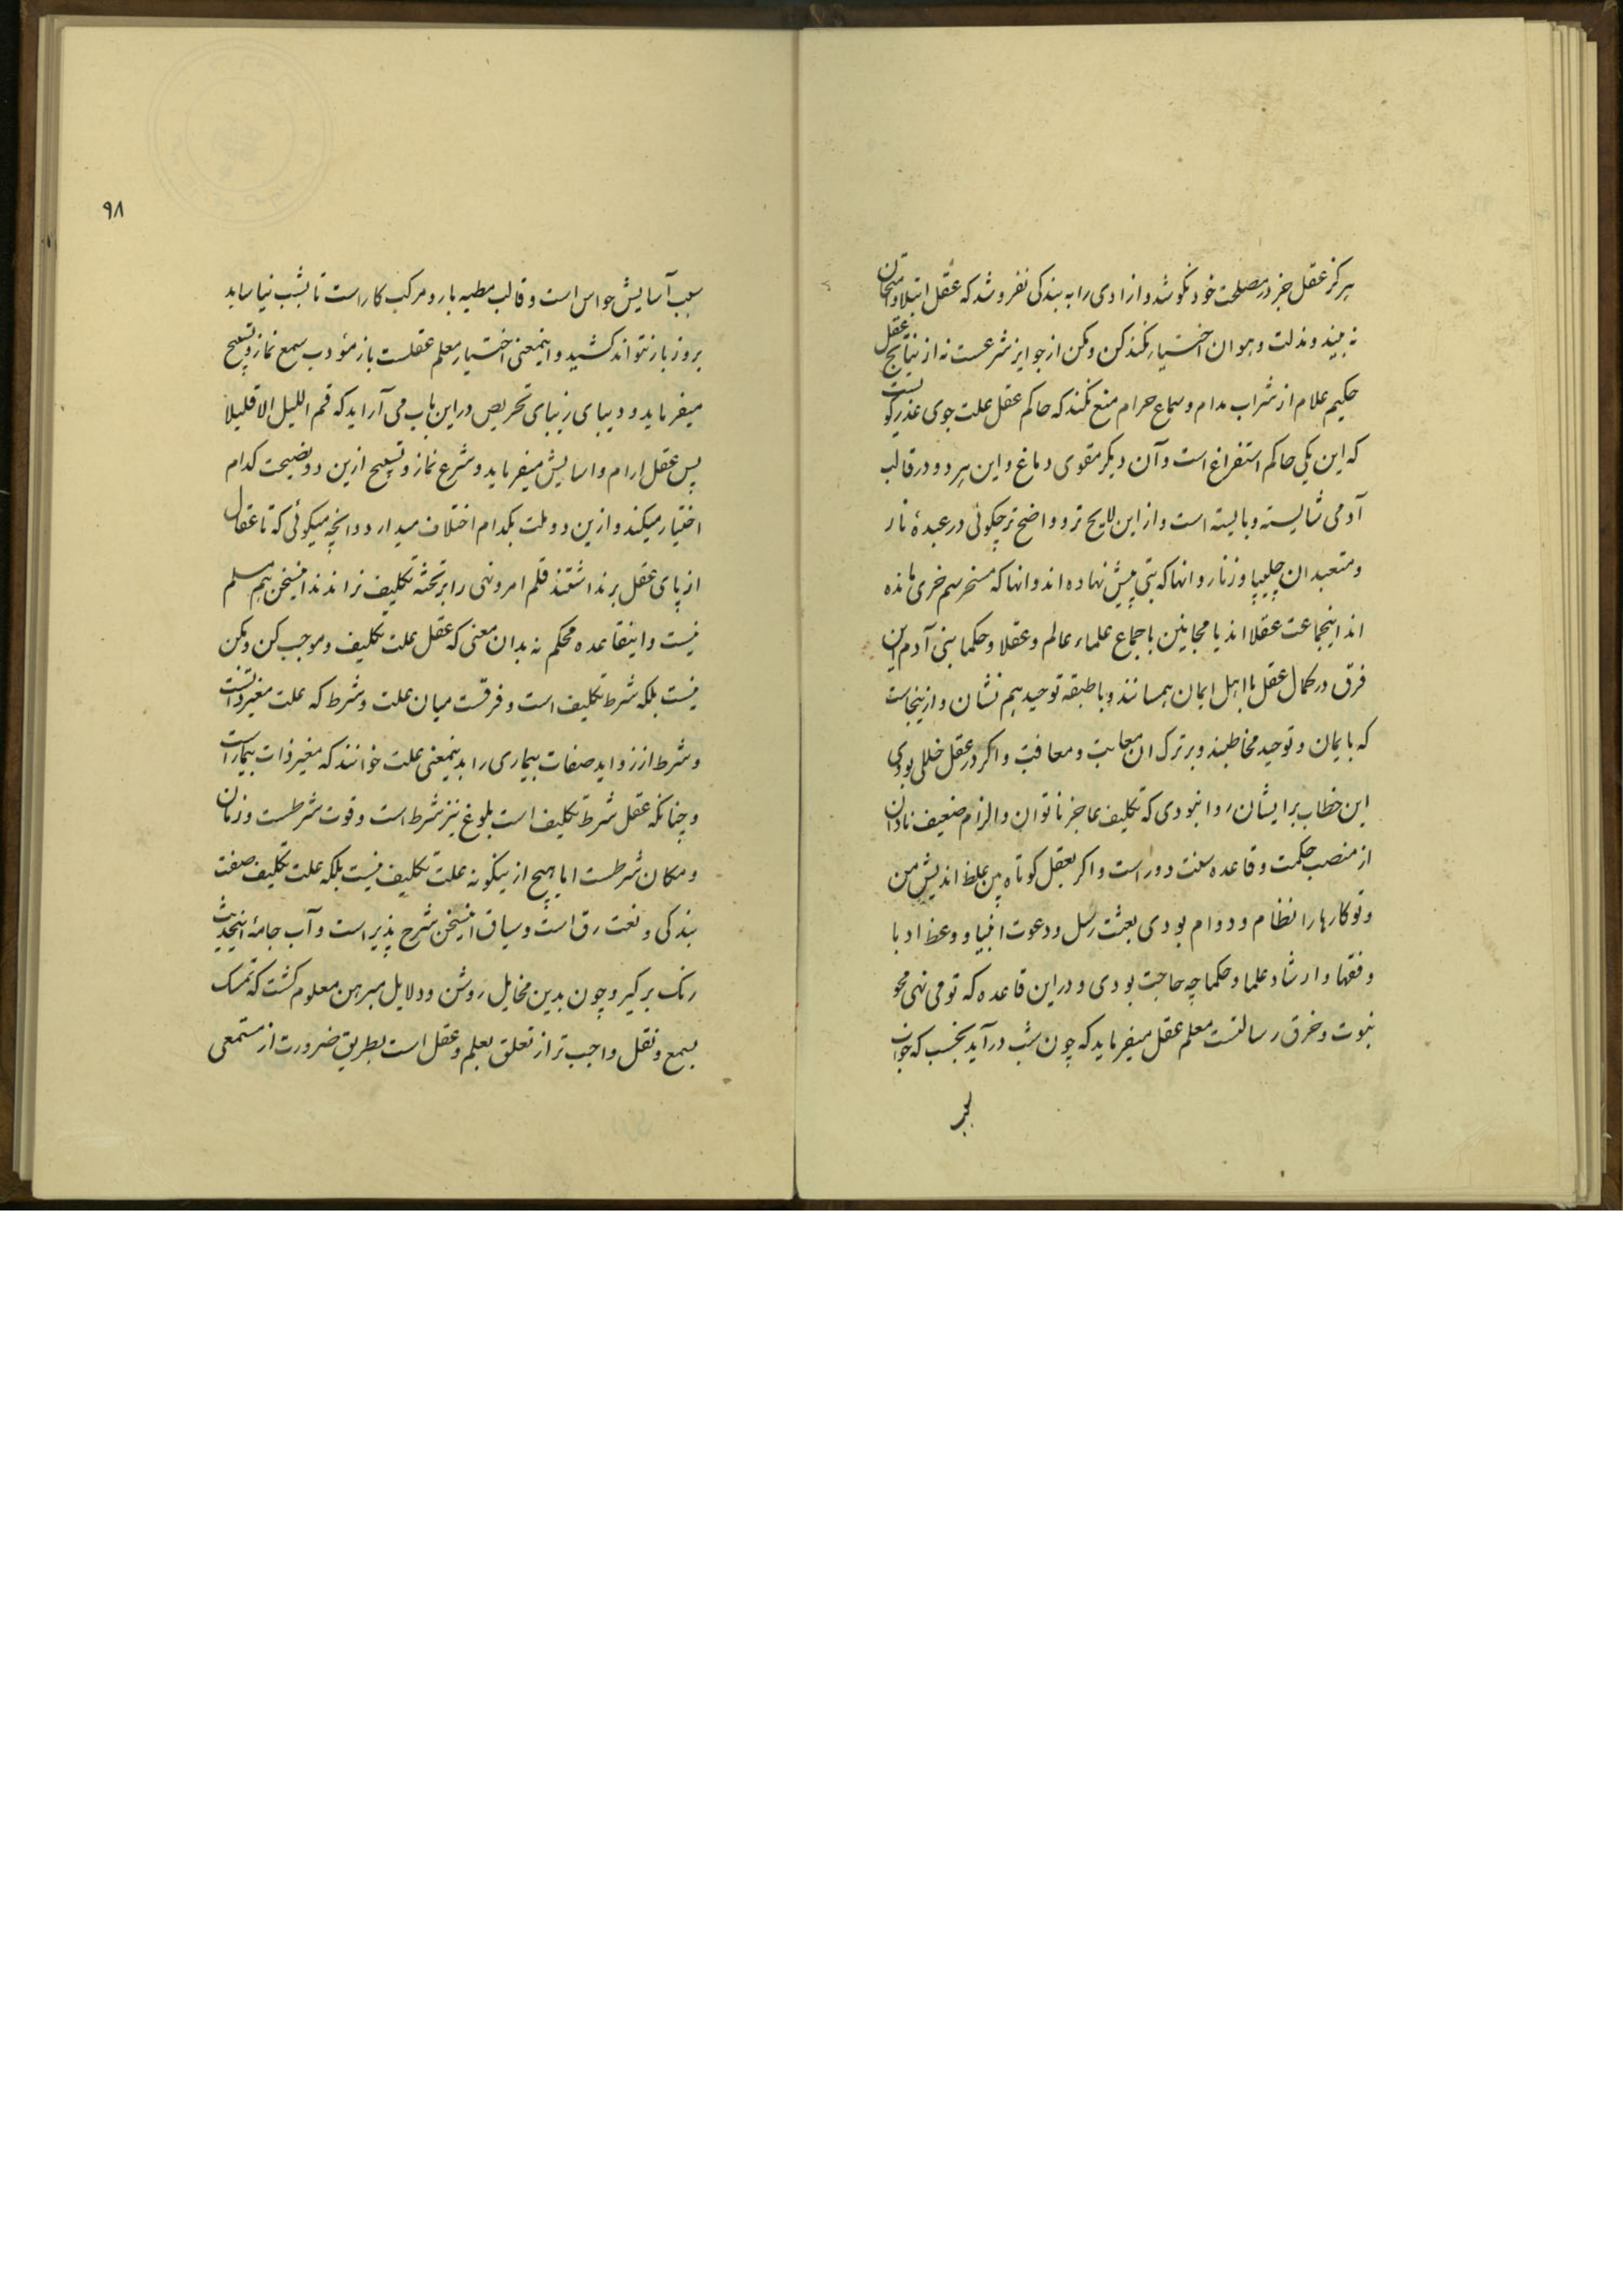 هرکز عقل جز در مصلحت خود نکوشد و ازادی را به بندکی نفروشد که عقل ابتلا و امتحان
نه بیند و مذلت و هوان اختیار نکند کن و مکن از جوایز شرعست نه از نتایج عقل
حکیم علام از شراب مدام و سماع حرام منع نکند که حاکم عقل علت جوی عذرکو
که این یکی حاکم استفراغ است و آن دیکر مقوی دماغ و این هر دو در قالب
آدمی شایسته و بایسته است و از این لایح تر و واضح تر چکوئی در عبدهٔ نار
و متعبدان چلیپا و زنار و انها که بتی پیش نهاده اند و انها که مسخر سم خری مانده
اند اینجماعت عقلا اند یا مجانین باجماع علماء عالم و عقلا و حکما بنی آدم این
فرق در کمال عقل با اهل ایمان همسانند و با طبقه توحید هم نشان و ازینجاست
که بایمان و توحید مخاطبند و بر ترک ان معاتب و معاقب و اکر در عقل خللی بودی
این خطاب بر ایشان روا نبودی که تکلیف عاجز ناتوان و الزام ضعیف نادان
از منصب حکمت و قاعده سنت دور است و اکر بعقل کوتاه بین غلط اندیش من
و تو کارها را نظام و دوام بودی بعثت رسل و دعوت انبیا و وعظ ادبا
و فقها و ارشاد علما و حکما چه حاجت بودی و در این قاعده که تو می نهی محو
نبوت و خرق رسالتست معلم عقل میفرماید که چون شب درآید بخسب که خواب
۹۸
سبب آسایش حواس است و قالب مطیه بار و مرکب کار است تا بشب نیاساید
بروز بار نتواند کشید و اینمعنی اختیار معلم عقلست باز مؤدب سمع نماز و تسبیح
میفرماید و دیبای زیبای تحریص در این باب می آراید که قم اللیل الا قلیلا
پس عقل ارام و اسایش میفرماید و شرع نماز و تسبیح ازین دو نصیحت کدام
اختیار میکند و ازین دو ملت بکدام اختلاف میدارد و انچه میکوئی که تا عقال
از پای عقل برنداشتند قلم امر و نهی را بر تخته تکلیف نراندند اینسخن هم مسلم
نیست و اینقاعده محکم نه بدان معنی که عقل علت تکلیف و موجب کن و مکن
نیست بلکه شرط تکلیف است و فرقست میان علت و شرط که علت مغیر ذاتست
و شرط از زواید صفات بیماری را بدینمعنی علت خوانند که مغیر ذات بیمار است
و چنانکه عقل شرط تکلیف است بلوغ نیز شرط است و قوت شرطست و زمان
و مکان شرطست اما هیچ ازینکونه علت تکلیف نیست بلکه علت تکلیف صفت
بندکی و نعت رق است و سیاق اینسخن شرح پذیر است و آب جامهٔ اینحدیث
رنک برکیر و چون بدین مخایل روشن و دلایل مبرهن معلوم کشت که تمسک
بسمع و نقل واجب تر از تعلق بعلم و عقل است بطریق ضرورت از مستمعی